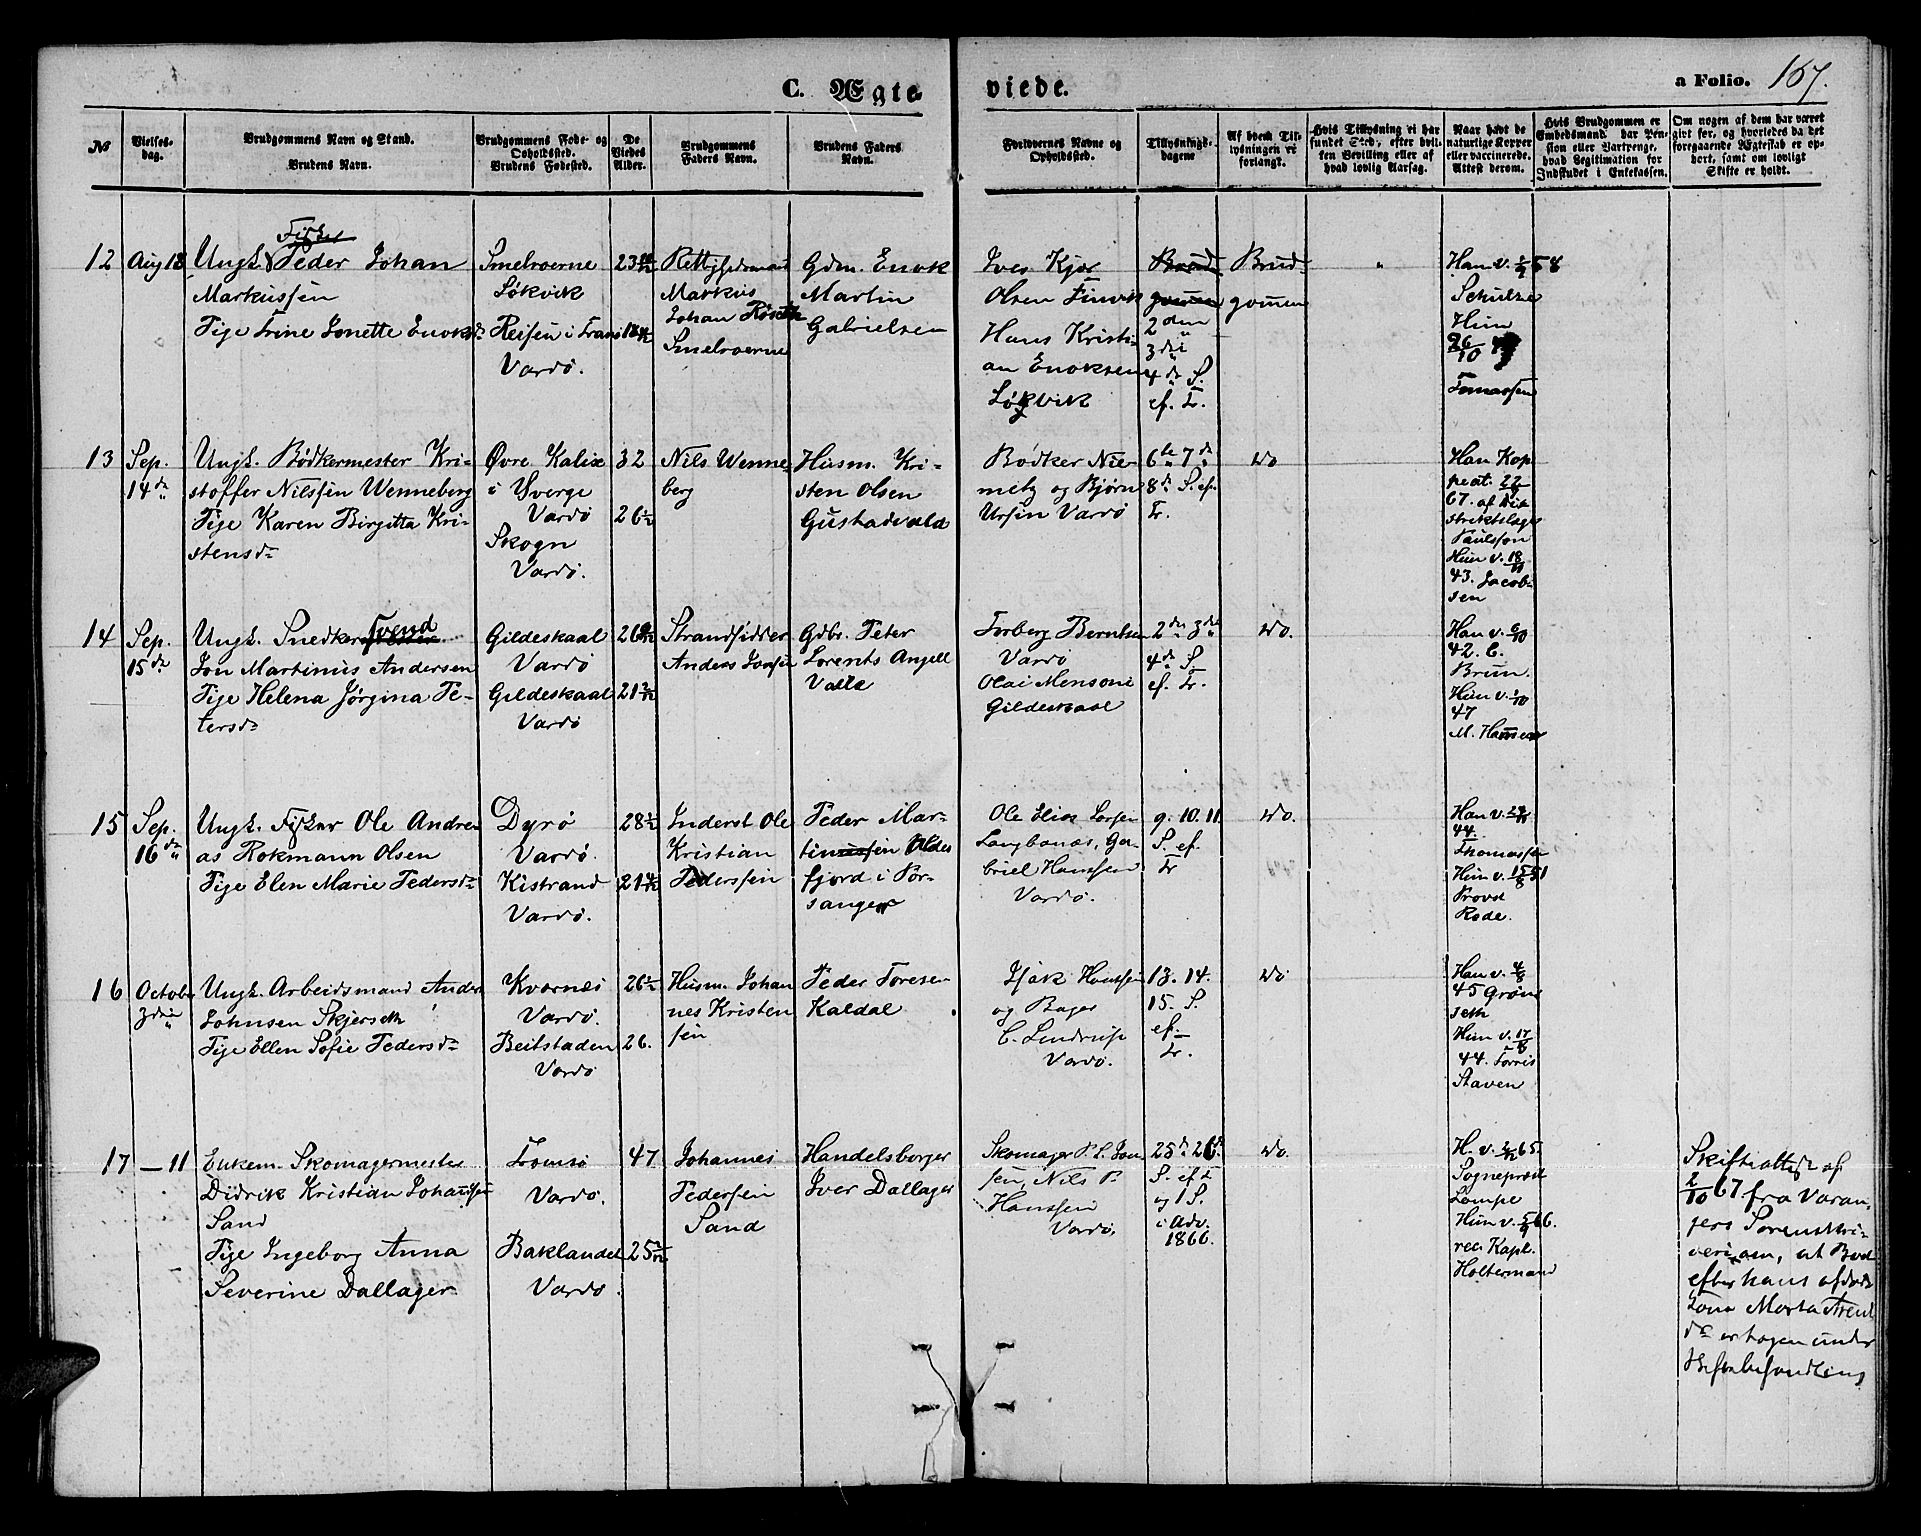 C. Ægte
viede.
a Folio. 167.
№
Vielses-
dag.
Brudgommens Navn og Stand.
Brudens Navn.
Brudgommens Føde- og
Opholdssted.
Brudens Fødested.
De
Viedes
Alder.
Brudgommens
Faders Navn.
Brudens Faders
Navn.
Forlovernes Navne og
Opholdssted.
Tillysnings-
dagene
Af hvem Til-
lysningen er
forlangt.
Hvis Tillysning ei har
fundet Sted, efter hvil-
ken Bevilling eller af
hvad lovlig Aarsag.
Naar havt de
naturlige Kopper
eller vaccinerede.
Attest derom.
Hvis Brudgommen er
Embedsmand har Pen-
sion eller Vartpenge,
hvad Legitimation for
Indskudet i Enkekassen.
Om nogen af dem har været
gift før, og hvorledes da det
foregaaende Ægteskab er op-
hørt, samt om lovligt
Skifte er holdt.
12
Aug 18
Fisker
Ungk. Peder Johan
Markussen
Pige Trine Jonette Enoksd.
Smelroerne
Løkvik
Reisen i Tranø
Vardø.
23
Rettighedsmand
Markus
Johan
Smelroerne
Gdm. Enok
Martin
Gabrielsen
Ives Kjer
Olsen Finvik
Hans Kristi-
an Enoksen
Løkvik
Brud
gommen
2den
3die
4de S.
ef. Tr.
Brud-
gommen
"
Han v. 58
Schulze
Hun
26/10
Tomassen
13
Sep.
14de
Ungk. Bødkermester Kri-
stoffer Nilssen Wenneberg
Pige Karen Birgitta Kri-
stensdr
Øvre Kalix
i Sverge
Vardø
Skogn
Vardø.
32
26½
Nils Wenne
berg
Husm. Kri-
sten Olsen
Gustadvald
Bødker Nie-
metz og Bjørn
Ursin Vardø
6te 7de
8de S. ef.
Tr.
do
Han Kop
peat.
67. af Di
striktslæge
Paulsson
Hun v. 18/11
43. Jacob-
sen
14
Sep.
15de
Ungk. Snedkersvend
Jon Martinus Andersen
Pige Helena Jørgina Pe-
tersdr
Gildeskaal
Vardø
Gildeskaal
Vardø
26
21
Strandsidder
Anders Jonsen
Gdbr. Peter
Lorents Angell
Valle
Torberg Berntsen
Vardø
Olai Mensoni
Gildeskaal
2den 3die
4de S.
ef. Tr.
do.
Han v. 6/10
42. C.
Brun.
Hun v. 1/10
47
M. Hansen
15
Sep.
16de
Ungk. Fisker Ole Andre-
as Rokmann Olsen
Pige Elen Marie Pedersdr
Dyrø
Vardø.
Kistrand
Vardø.
28½
21
Inderst Ole
Kristian
Pedersen
Peder Mar-
tinussen Olde
fjord i Por-
sanger
Ole Elias Larsen
Langbonæs, Ga-
briel Hanssen
Vardø.
9. 10. 11
S. ef.
Tr
do.
Han v.
44.
Thomassen
Hun v. 15/8 51
Provst
Rode.
16
Octobr
3die
Ungk. Arbeidsmand Anders
Johnsen Skjerseth
Pige Ellen Sofie Pedersdr
Kvernes
Vardø.
Beitstaden
Vardø
26½
26.
Husm. Johan
nes Kristen
sen
Peder Toresen
Kaldal
Isak Hontsen
og Bager
C. Lindrup
Vardø.
13. 14.
15. S.
ef.
Tr.
do
Han v.
45 Grøn
seth
Hun v. 17/8
44. Torris
Staven
17
— 11
Enkem. Skomagermester
Didrik Kristian Johanssen
Sand
Pige Ingeborg Anna
Severine Dallager
Tromsø
Vardø.
Baklandet
Vardø.
47
25
Johannes
Pedersen
Sand
Handelsborger
Iver Dallager
Skomager P. L. Jon
sen, Nils P.
Hanssen
Vardø.
25de 26de
S. ef T
og 1 S.
i Adv.
1866.
do.
H. v. 65.
Sogneprest
Lampe
Hun v. 66.
rec. Kapl.
Holtermand
Skifteattest af
2/10 67 fra Varan-
gers Sorenskri-
veriaen, at Boet
efter hans afdøde
Kone Marta Arent
dr er tagen under
Skiftebehandling